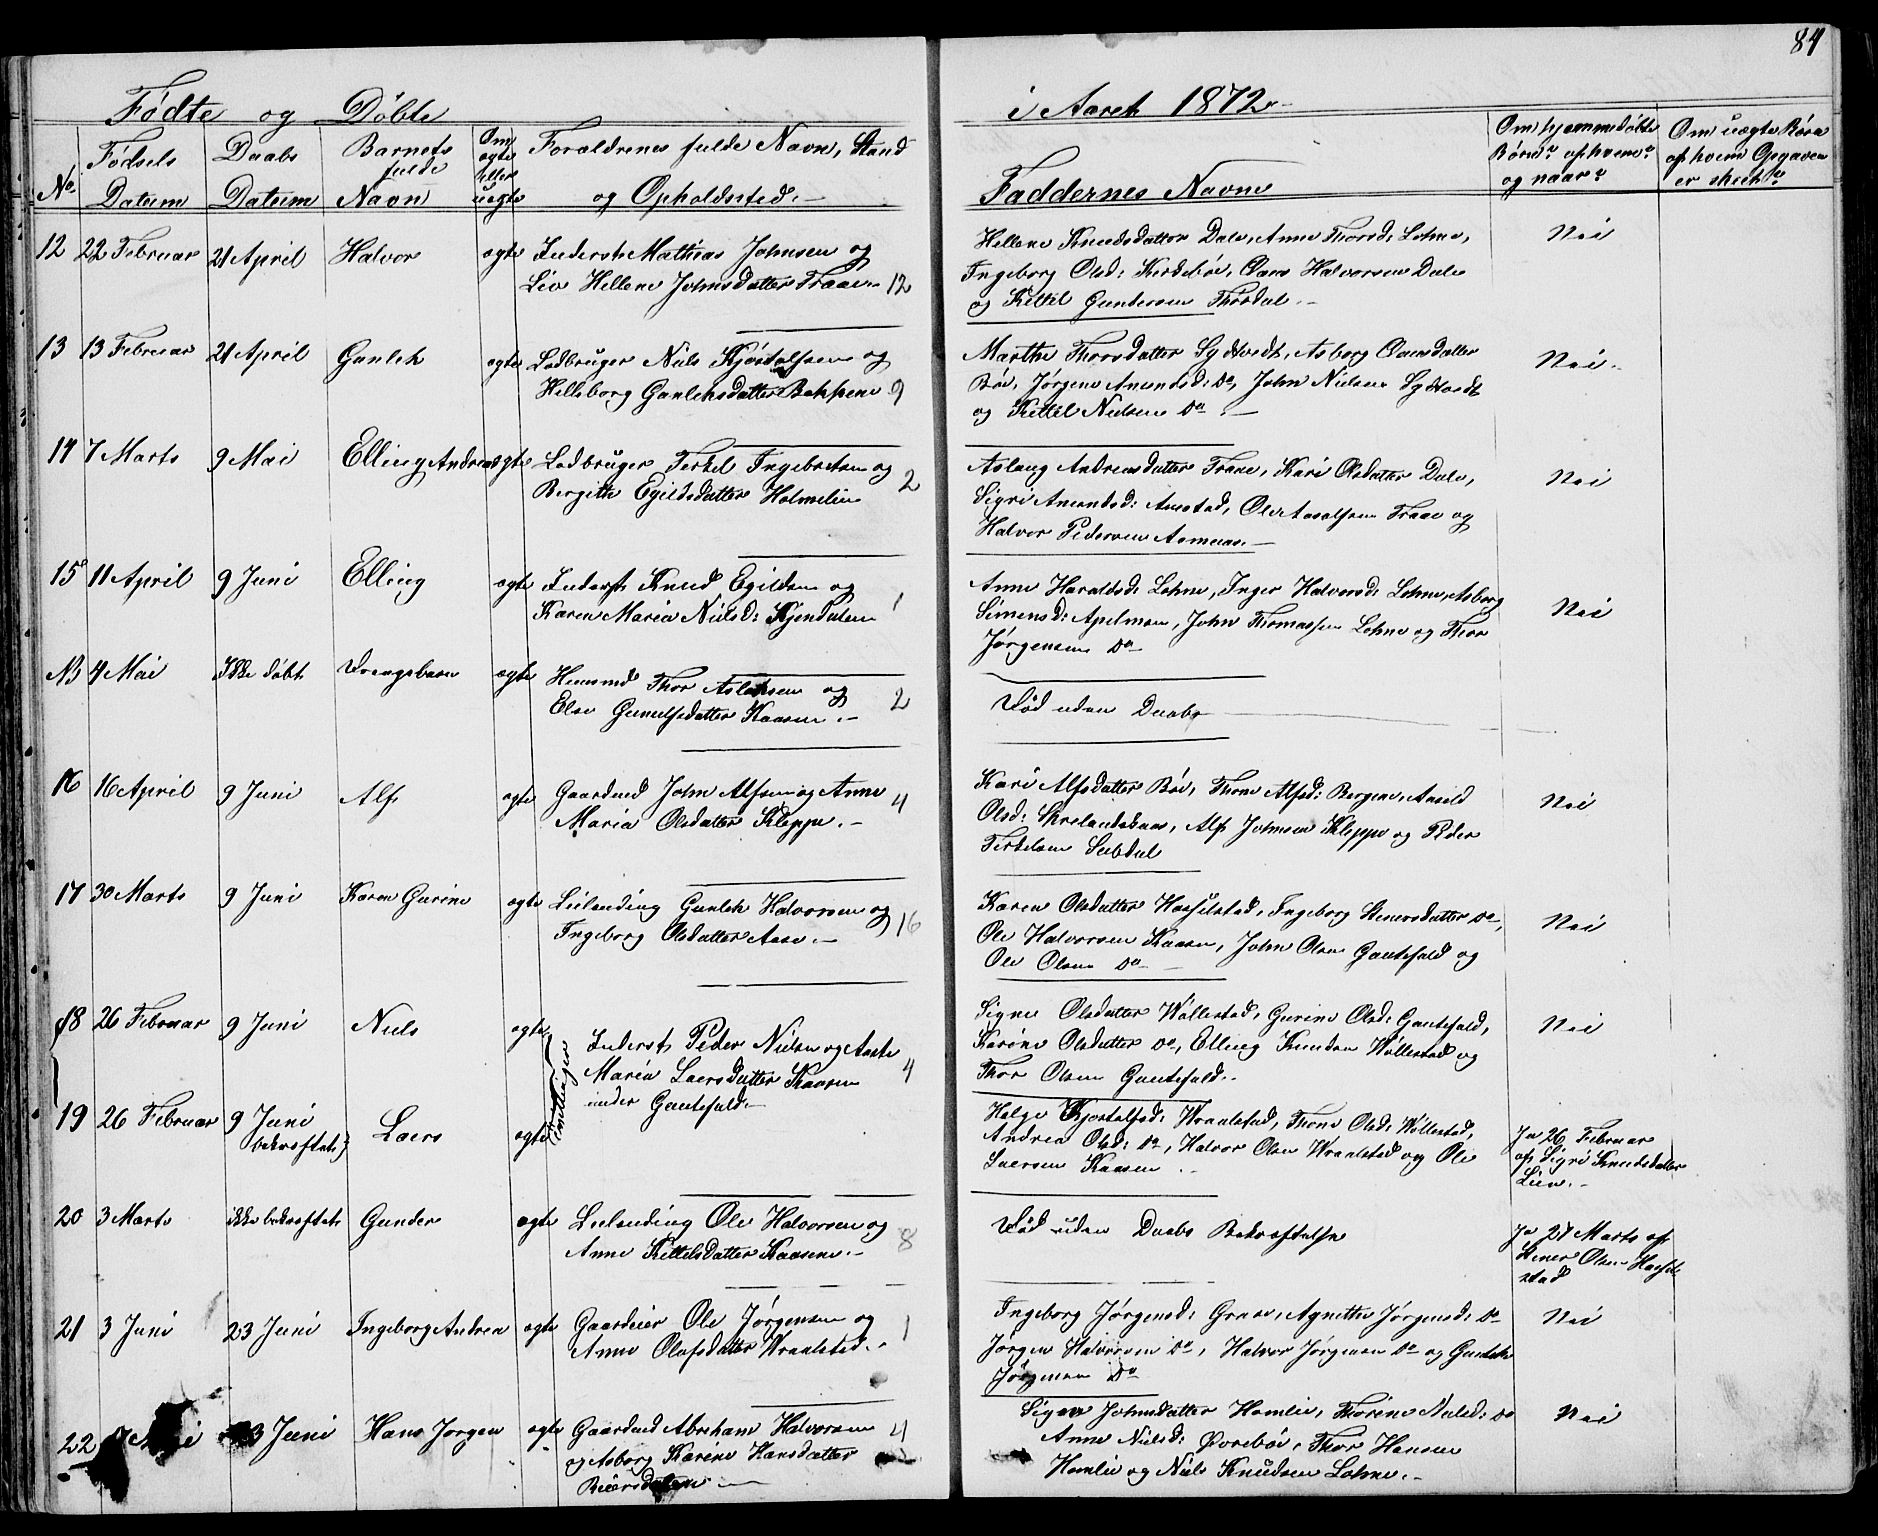 84
Fødte og Døbte
i Aaret 1872
No.
Fødsels Datum
Daabs Datum
Barnets fulde Navn
Om ægte eller uægte
Forældrenes fulde Navn, Stand og Opholdssted.
Faddernes Navne
Om hjemmedøbte Børn? af hvem? og naar?
Om uægte Børn af hvem Opgaven er skeet?
12 22 Februar 21 April Halvor ægte Inderst Mathias Johnsen og
Liv Hellene Johnsdatter Traae 12
Hellene Knudsdatter Dale, Anne Thorsd: Lohne,
Ingeborg Olsd: Kirkebøe, Claus Halvorsen Dale
og Kittil Gundersen Thordal.
Nei
13 13 Februar 21 April Gunlek ægte Ledbruger Niels Kjøstolfsen og
Helleborg Gunleksdatter Bakkene 9
Marthe Thorsdatter Sydtvedt, Asborg Clausdatter
Bøe, Jørgine Amundsd: Do, John Nielsen Sydtvedt
og Kittil Nielsen Do
Nei.
14 7 Marts 9 Mai Elling Andreas ægte Ledbruger Terkel Ingebretsen og
Bergitte Egilsdatter Holmelien 2
Aslaug Andreasdatter Traae, Kari Olsdatter Dale,
Sigri Amundsd: Aarstad, Ole Aasolfsen Traae og
Halvor Pedersen Aasmaas.
Nei
15 11 April 9 Juni Elling ægte Inderst Knud Egildsen og
Karen Maria Nielsd: Kjendalen 1
Anne Haraldsd: Lohne, Inger Halvorsd: Lohne, Asborg
Simensd: Apelmoen, John Thomassen Lohne og Thor
Jørgensen Do
Nei
NB 4 Mai Ikke døbt Drengebarn ægte Huusmd Thor Aslaksen og
Else Gunulfsdatter Kaasen. 2
Død uden Daab
16 16 April 9 Juni Alf ægte Gaardmd John Alfsen og Anne
Maria Olsdatter Kleppe. 4
Kari Alfsdatter Bøe, Thone Alfsd: Bergene, Aasild
Olsd: Skrelandskaas, Alf Johnsen Kleppe og Peder
Terkelsen Sæbdal
Nei
17 30 Marts 9 Juni Karen Gurine ægte Leilending Gunlek Halvorsen og
Ingeborg Olsdatter Aase. 16
Karen Olsdatter Hasselstad, Ingeborg Steenersdatter Do,
Ole Halvorsen Kaasen, John Olsen Gautefald og
Ole Olsen Do
Nei
18 26 Februar 9 Juni Niels ægte
Tvillinger
Inderst Peder Nielsen og Aaste
Maria Laersdatter Kaasen 4
under Gautefald.
Signe Olsdatter Wøllestad, Gurine Olsd: Gautefald,
Karine Olsdatter Do, Elling Knudsen Wøllestad og
Thor Olsen Gautefald.
Nei
19 26 Februar 9 Juni bekræftet Laers ægte
Helge Kjøstolfsd: Wraalstad, Thone Olsd: Wøllestad,
Andrea Olsd: Do, Halvor Olsen Wraalstad og Ole
Laersen Kaasen
Ja 26 Februar
af Sigri Knudsdatter
Lien.
20 3 Marts ikke bekræftet Gunder ægte Leilending Ole Halvorsen og
Anne Kittelsdatter Kaasene. 8
Død uden Daabs Bekræftelse
Ja 27 Marts af
Stener Olsen Hassel-
stad
21 3 Juni 23 Juni Ingeborg Andrea ægte Gaardeier Ole Jørgensen og
Anne Olafsdatter Wraalstad. 1
Ingeborg Jørgensd: Grave, Agnethe Jørgensd: Do
Jørgen Halvorsen Do, Halvor Jørgensen Do og
Jørgensen Do
Nei
22 7 Mai 23 Juni Hans Jørgen ægte Gaardmd Abraham Halvorsen 4
og Asborg Karine Hansdatter
Signe Johnsdatter Homlie, Thorine Nielsd: Do
Anne Nielsd: Øvrebøe, Thor Hansen
Homlie og Niels Knudsen Lohne.
Nei